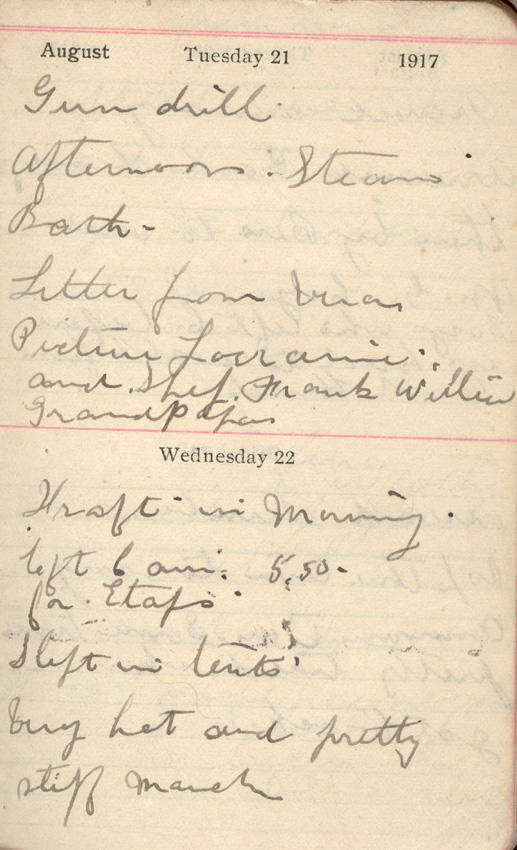 August Tuesday 21 1917
Gun drill.
Afternoon. Steam
Bath -
Letter from
Picture Lorraine.
and Shef. Frank Willie
Grandpapas
Wednesday 22
in Morning.
left 6 am: 5.50 -
for. Etaps
Slept in tents
Very hot and pretty
stiff march